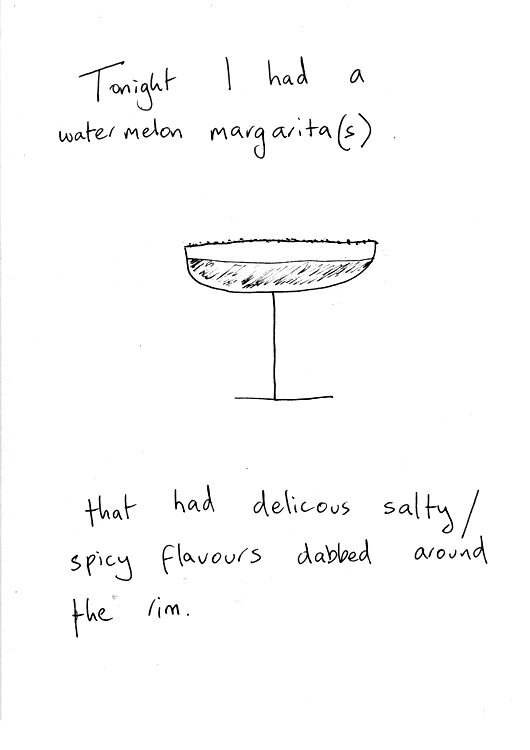 Tonight I had a
watermelon margarita(s).
that had delicous salty/
spicy flavours dabbed around
the rim.